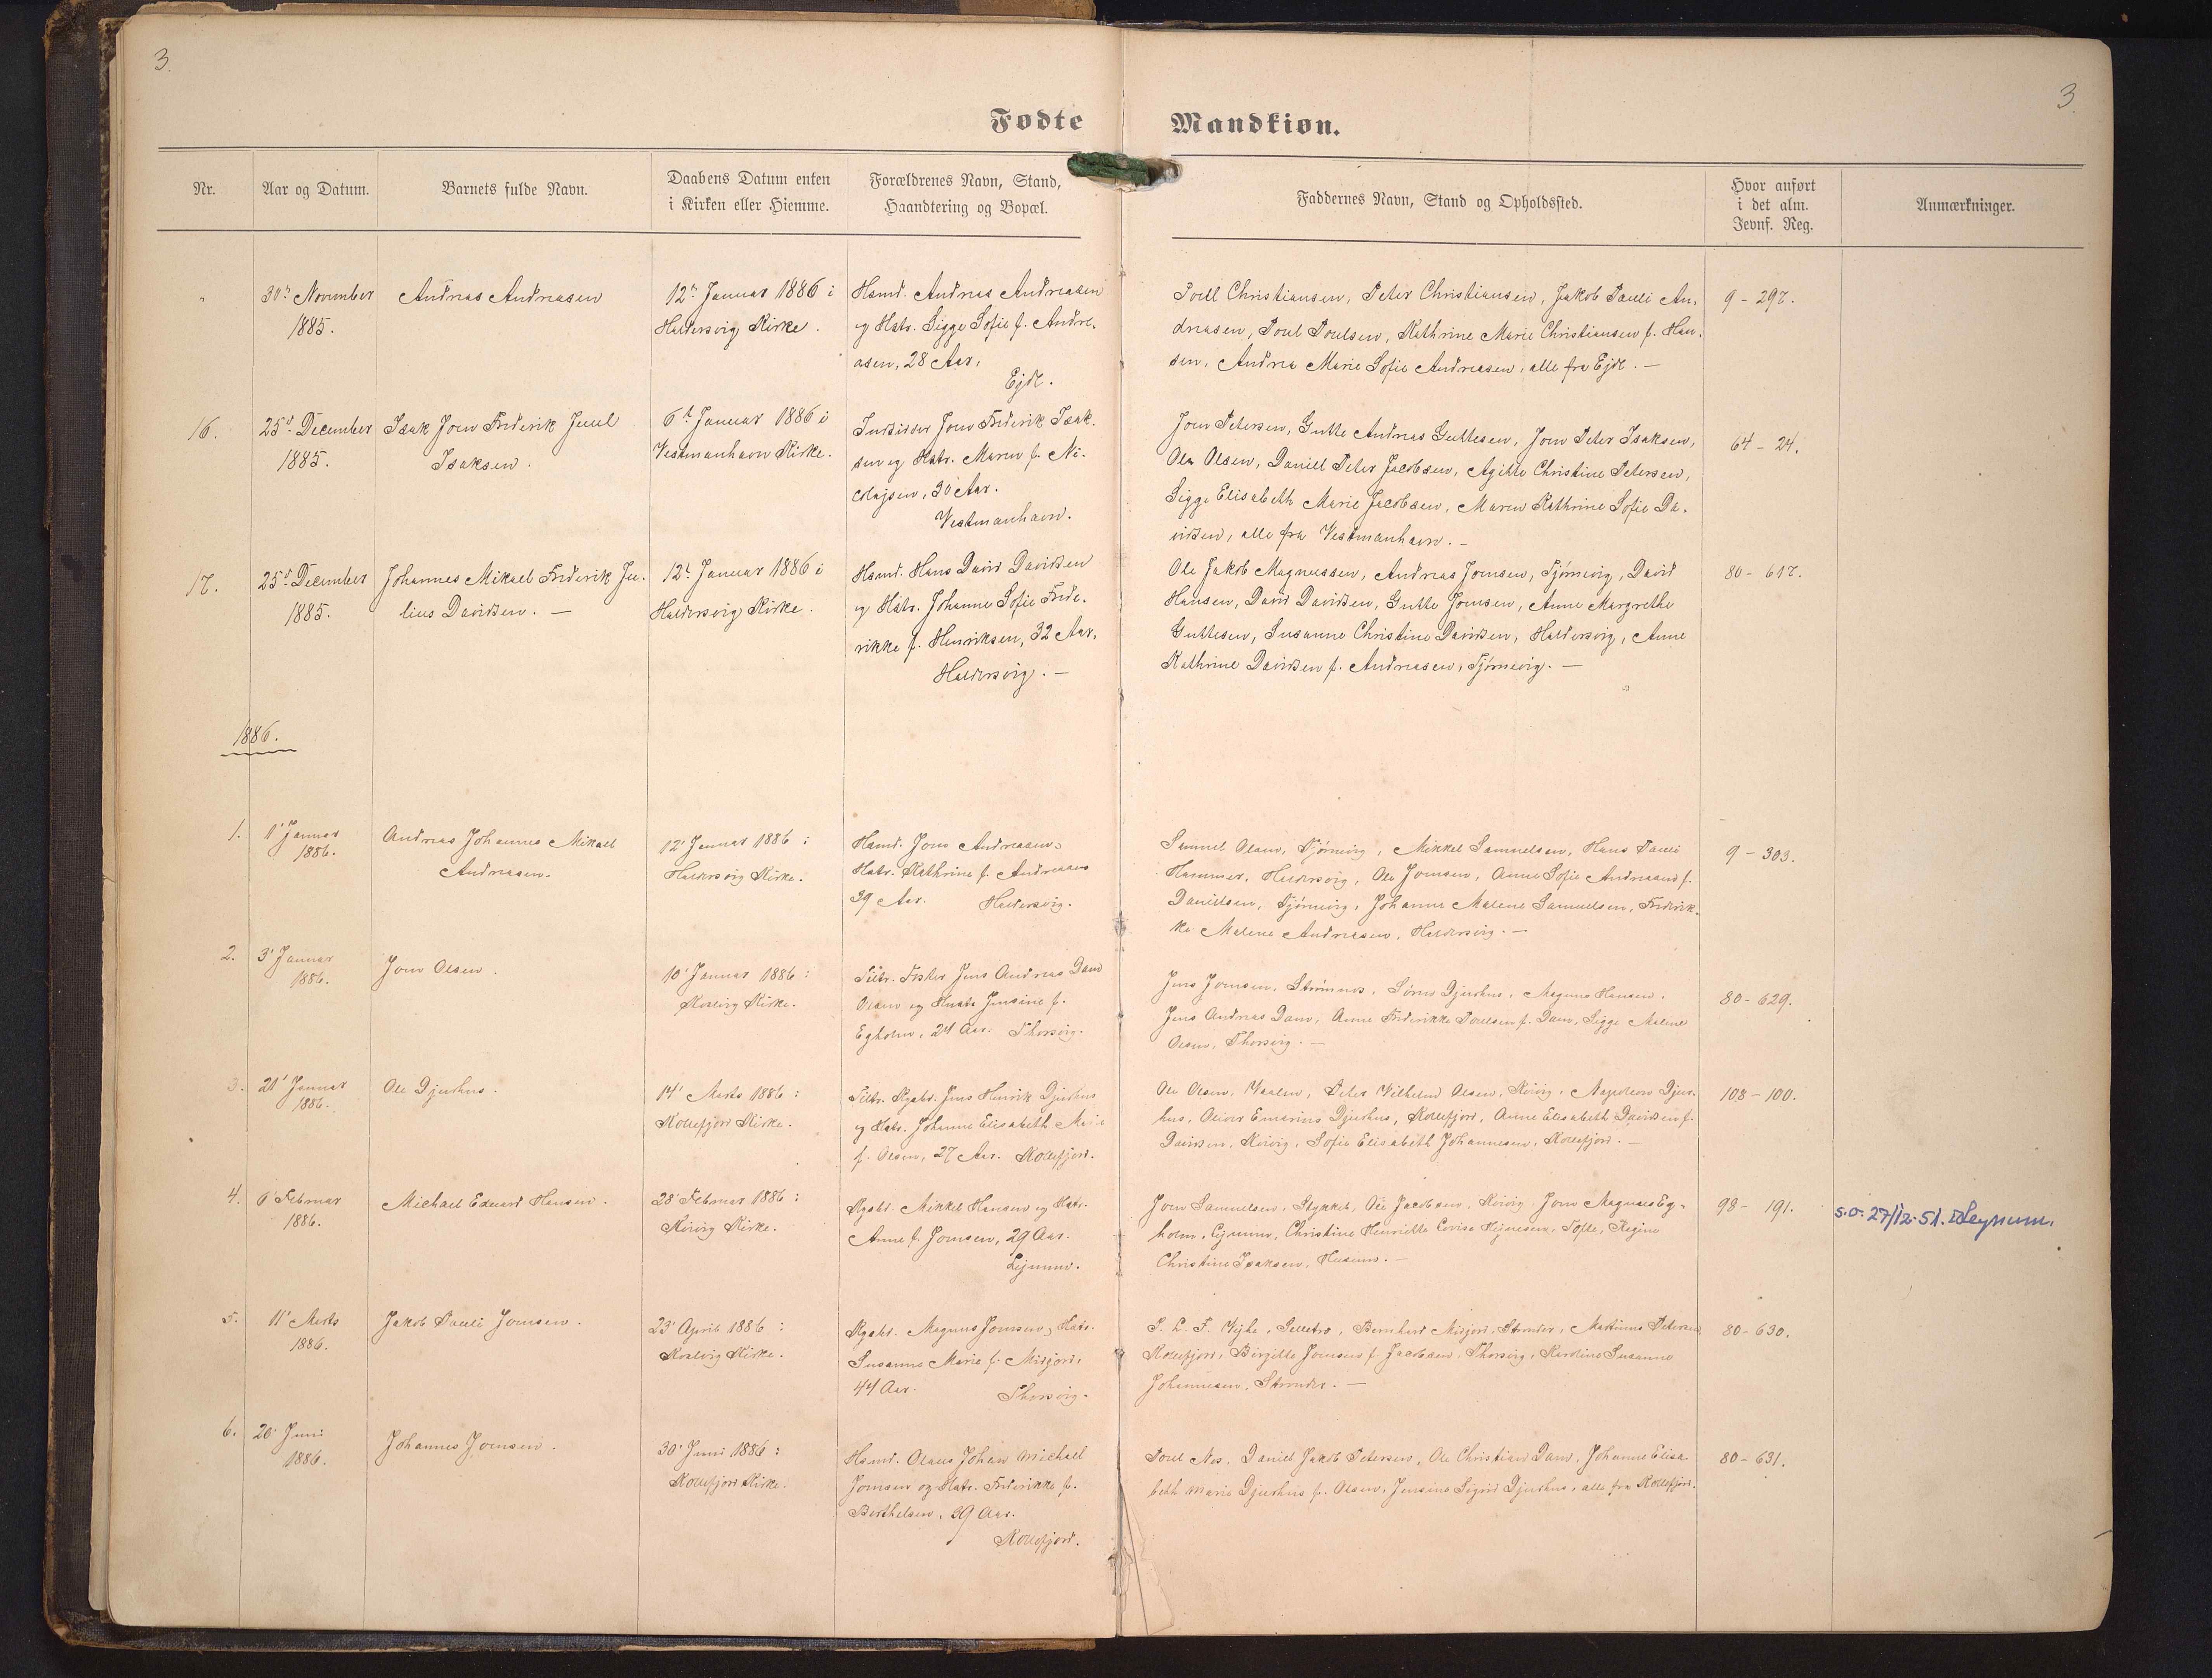 3.
3
Fødte
Mandkiøn.
Nr.
Aar og Datum.
Barnets fulde Navn.
Daabens Datum enten
i Kirken eller Hiemme.
Forældrenes Navn, Stand,
Haandtering og Bopæl.
Faddernes Navn, Stand og Opholdssted.
Hvor anført
i det alm.
Jevnf. Reg.
Anmærkninger.
"
30' November
1885.
Andreas Andreasen
12' Januar 1886 i
Haldersvig Kirke.
Hsmd. Andreas Andreasen
og Hstr. Sigge Sofie f. Andre-
asen, 28 Aar,
Ejde.
Poull Christiansen, Peter Christiansen, Jakob Pauli An-
dreasen, Poul Poulsen, Kathrine Marie Christiansen f. Han-
sen, Andrea Marie Sofie Andreasen, alle fra Ejde. —
9 - 297.
16.
25d December
1885.
Isak Joen Frederik Juul
Isaksen.
6t Januar 1886 i
Vestmanhavn Kirke.
Indsidder Joen Frederik Isak-
sen og Hstr. Maren f. Ni-
colajsen, 30 Aar.
Vestmanhavn.
Joen Petersen, Gutte Andreas Guttesen, Joen Peter Isaksen,
Ole Olsen, Daniel Peter Jacobsen, Agitte Christine Petersen,
Sigge Elisabeth Marie Jacobsen, Maren Kathrine Sofie Da-
vidsen, alle fra Vestmanhavn. —
64 - 24.
17.
25d December
1885.
Johannes Mikael Frederik Ju-
lius Davidsen. —
12t Januar 1886 i
Haldersvig Kirke.
Hsmd. Hans David Davidsen
og Hstr. Johanne Sofie Frede-
rikke f. Henriksen, 32 Aar,
Haldersvig. —
Ole Jakob Magnussen, Andreas Joensen, Tjørnevig, David
Hansen, David Davidsen, Gutte Joensen, Anne Margrethe
Guttesen, Susanne Christine Davidsen, Haldersvig, Anne
Kathrine Davidsen f. Andreasen, Tjørnevig. —
80 - 617.
1886.
1.
1' Januar
1886.
Andreas Johannes Mikael
Andreasen.
12' Januar 1886 i
Haldersvig Kirke.
Hsmd. Joen Andreasen
Hstr. Kathrine f. Andreasen
39 Aar. Haldersvig.
Samuel Olsen, Tjørnevig, Mikkel Samuelsen, Hans Pauli
Hammer, Haldersvig, Ole Joensen, Anne Sofie Andreasen f.
Danielsen, Tjørnevig, Johanne Malene Samuelsen, Frederik-
ke Malene Andreasen, Haldersvig. —
9 - 303.
2.
3' Januar
1886.
Joen Olsen.
10' Januar 1886 i
Kvalvig Kirke.
Fisker Jens Andreas Dam
Olsen og Jensine f.
Egholm, 24 Aar. Thorsvig.
Jens Joensen, Strømnes, Søren Djurhus, Magnus Hansen,
Jens Andreas Dam, Anne Frederikke Poulsen f. Dam, Sigge Malene
Olsen, Thorsvig. —
80 - 629.
3.
21' Januar
1886.
Ole Djurhus.
14' Marts 1886 i
Kollefjord Kirke.
Jens Henrik Djurhus
og Hstr. Johanne Elisabeth Marie
f. Olsen, 27 Aar. Kollefjord.
Ole Olsen, Peter Vilhelm Olsen, Kvivig, Napoleon Djur-
hus, Oliver Emarius Djurhus, Kollefjord, Anne Elisabeth Davidsen f.
Davidsen, Kvivig, Sofie Elisabeth Johannesen, Kollefjord. —
108 - 100.
4.
6' Februar
1886.
Michael Edvard Hansen.
28' Februar 1886 i
Kvivig Kirke.
Mikkel Hansen og Hstr.
Anne f. Joensen, 29 Aar.
Lejnum.
Joen Samuelsen, Stykket, Ole Jacobsen, Kvivig Joen Magnus Eg-
holm, Lejnum, Christine Henriette Lovise Hejnesen, Tofte, Regine
Christine Isaksen, Husum. —
98 - 191.
s.o. 27/12-51. Leynum.
5.
11' Marts
1886.
Jakob Pauli Joensen.
23' April 1886 i
Kvalvig Kirke.
Magnus Joensen, Hstr.
Susanne Marie f. Midjord,
44 Aar. Thorsvig.
P. L. F. Vejhe, Selletræ, Bernhard Midjord, Strender, Martinus Petersen,
Kollefjord, Birgitte Joensen f. Jacobsen, Thorsvig, Karoline Susanne
Johannesen, Strender. —
80 - 630.
6.
20' Juni
1886.
Johannes Joensen.
30' Juni 1886 i
Kollefjord Kirke.
Hsmd. Olaus Johan Michael
Joensen og Hstr. Frederikke f.
Berthelsen, 39 Aar.
Kollefjord.
Poul Nes, Daniel Jakob Petersen, Ole Christian Dam, Johanne Elisa-
beth Marie Djurhus f. Olsen, Jensine Sigrid Djurhus, alle fra Kollefjord.
80 - 631.